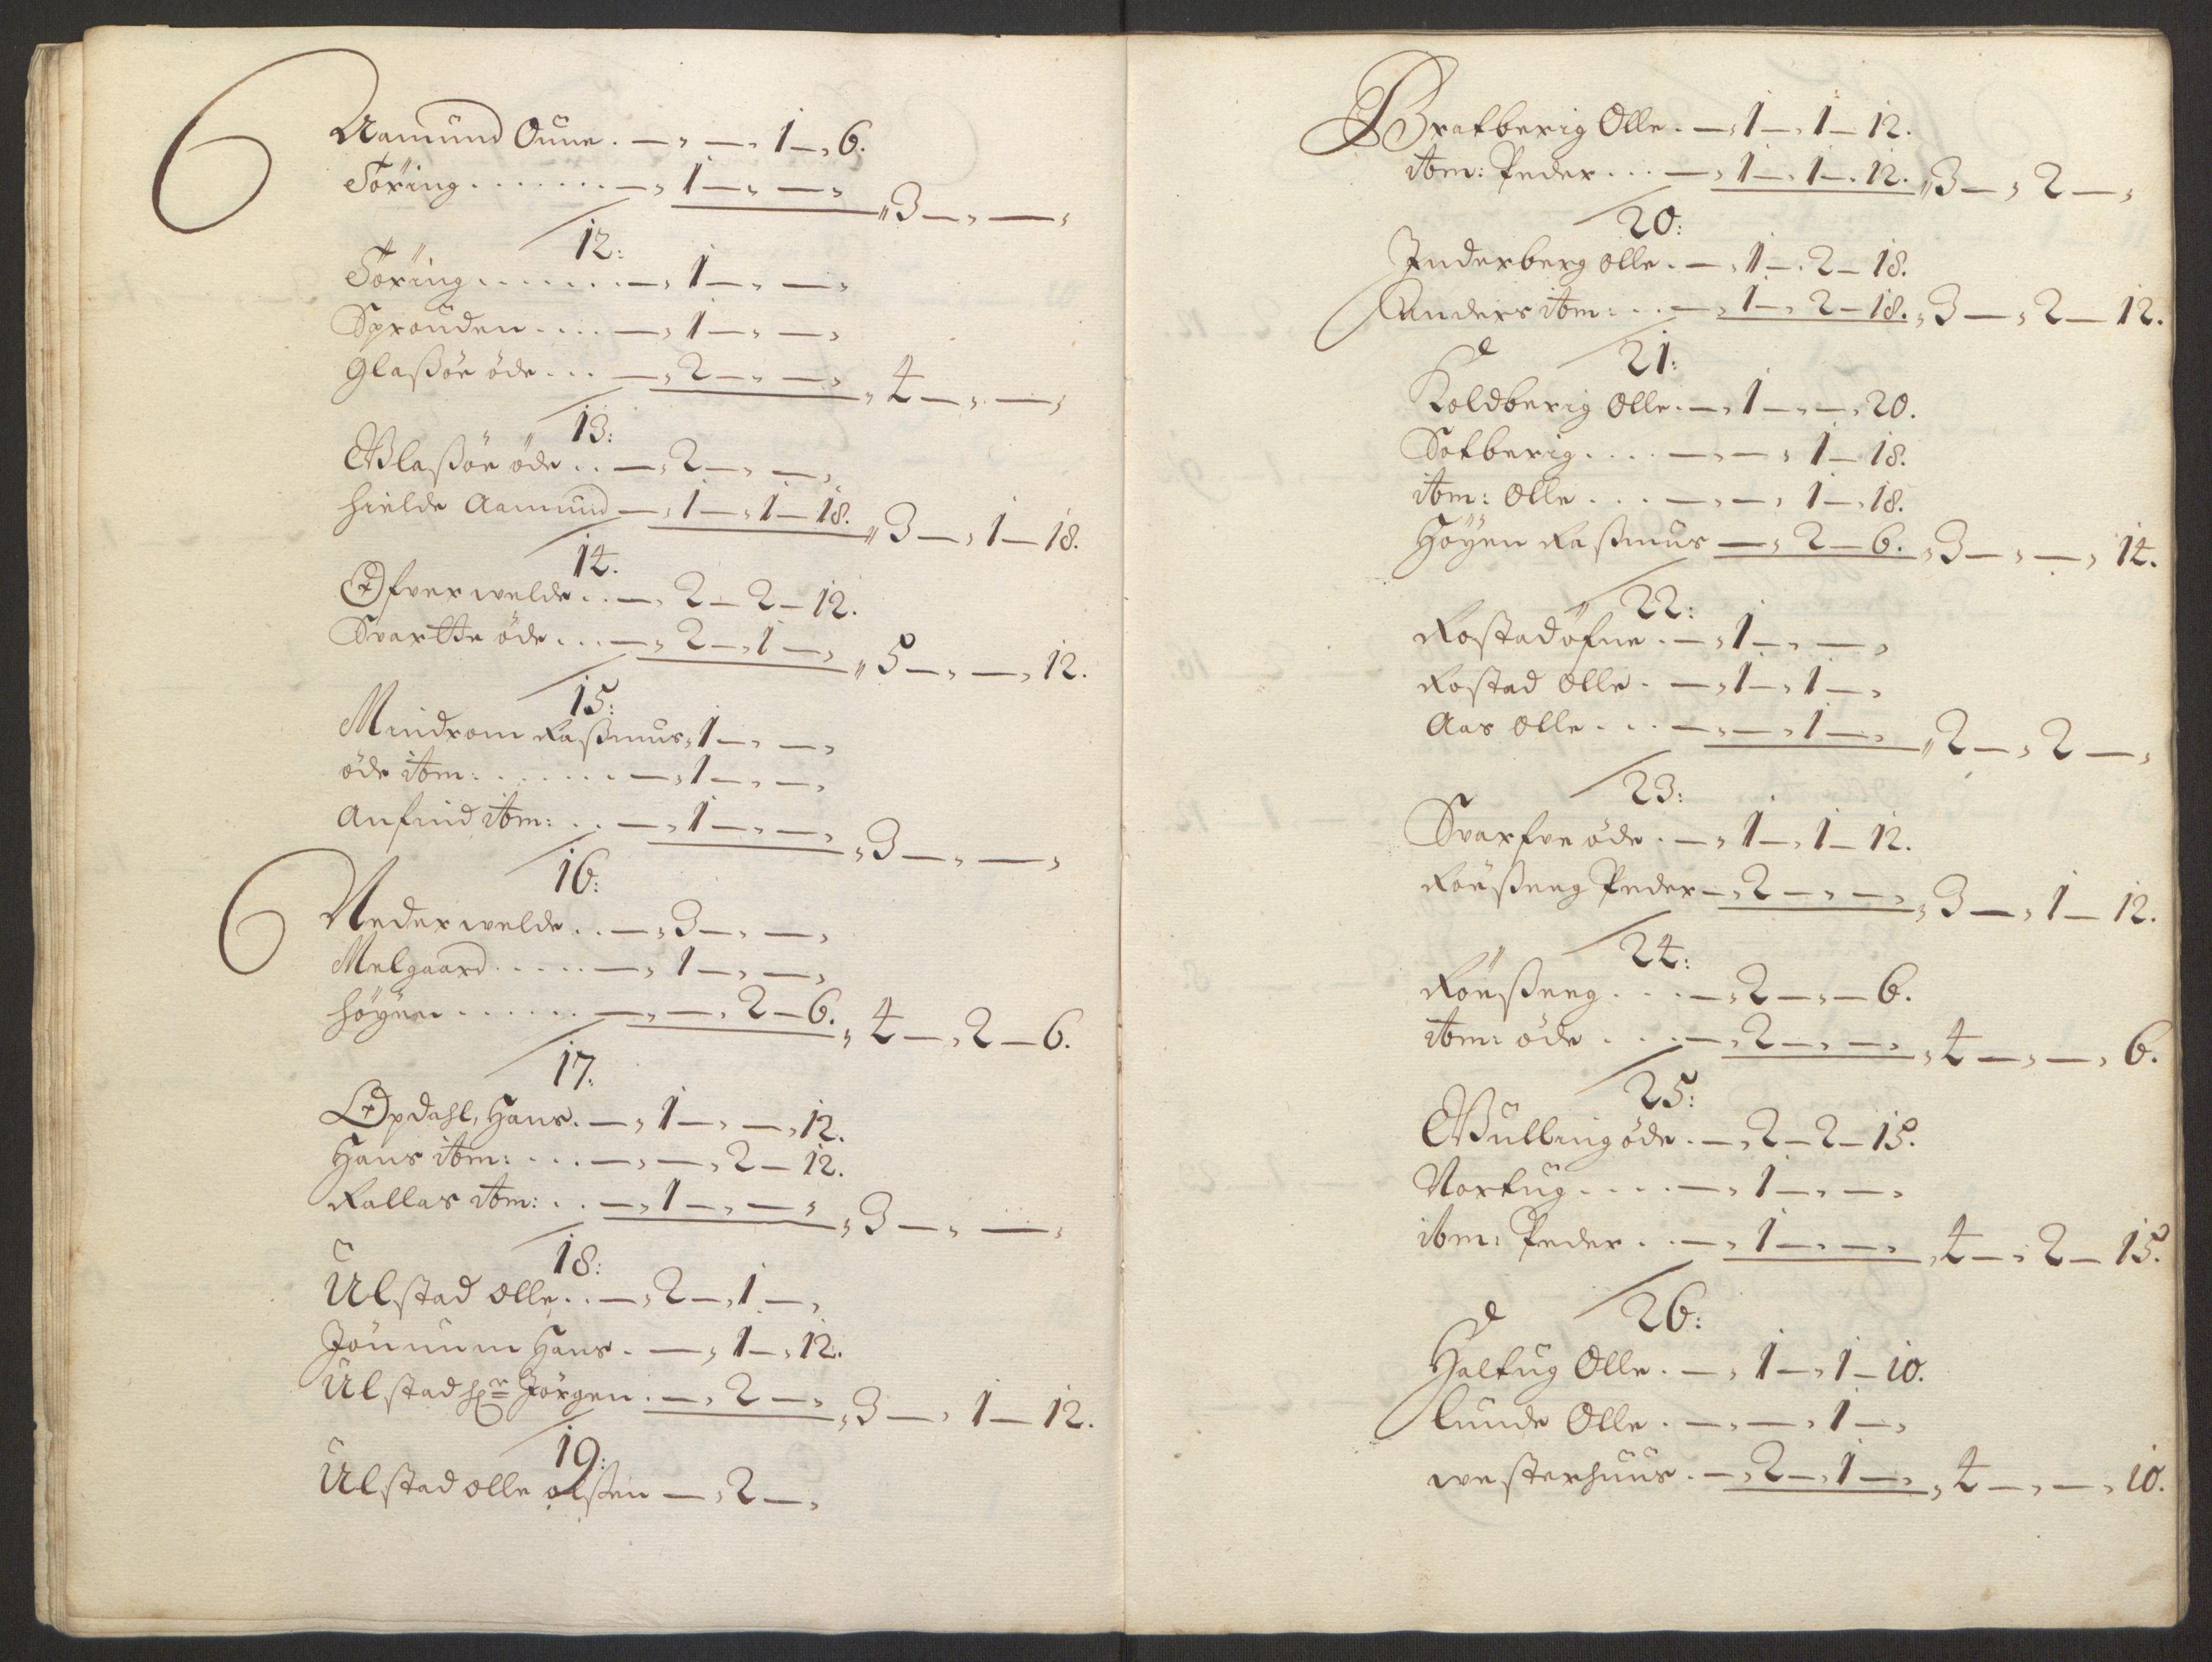 Aamund Oune. — „ — „ 1 — „ 6.
Töring. . . . . . . — „ 1 — „ — „ „ 3 — „ — „
12:
Töring. . . . . . . — „ 1 — „ — „
Sprouden. . . . — „ 1 — „ — „
Glaßöe öde. . . — „ 2 — „ — „ „ 4 — „ — „
13:
Glaßöe öde. . — „ 2 — „ — „
hielde Aamund — „ 1 — „ 1 — 18. „ 3 — „ 1 — 18.
14.
Ofverwelde. . — „ 2 — 2 — 12.
Svartte öde. . . — „ 2 — „ 1 — „ „ 5 — „ — „ 12.
15:
Mindrom Raßmus „ 1 — „ — „
öde ibm: . . . . . . — „ 1 — „ — „
Anfind ibm: . . — „ 1 — „ — „ „ 3 — „ — „
16:
Nederwelde. . — „ 3 — „ — „
Melgaard. . . . . — „ 1 — „ — „
höyen. . . . . . — „ — „ 2 — 6. „ 4 — „ 2 — 6.
17:
Opdahl, Hans. — „ 1 — „ — „ 12.
Hans ibm: . . . — „ — „ 2 — 12.
Kallas ibm: . . — „ 1 — „ — „ „ 3 — „ — „
18:
Ulstad olle. . — „ 2 — „ 1 — „
Jönnum Hans. — „ 1 — „ 12.
Ulstad hr Jörgen. — „ 2 — „ „ 3 — „ 1 — 12.
19:
Ulstad olle olßen — „ 2 — „
Bratberig Olle. — „ 1 — „ 1 — 12.
ibm: Peder. . . — „ 1 — „ 1 — 12. „ 3 — „ 2 — „
20:
Inderberg olle. — „ 1 — „ 2 — 18.
Anders ibm: . . — „ 1 — „ 2 — 18. „ 3 — „ 2 — 12.
21:
Koldberig Olle. — „ 1 — „ — „ 20.
Sotberig. . . . — „ — „ 1 — 18.
ibm: Olle. . . — „ — „ 1 — „ 18.
Höyen Raßmus — „ 2 — 6. „ 3 — „ — „ 14.
22:
Rostadöfne. — „ 1 — „ — „
Rostad olle. — „ 1 — „ 1 — „
Aas olle. . . — „ — „ 1 — „ „ 2 — „ 2 — „
23:
Svarfve öde. — „ 1 — „ 1 — 12.
Röeßeng Peder — „ 2 — „ — „ „ 3 — „ 1 — 12.
24:
Röeßeng. . . — „ 2 — „ — 6.
ibm: öde. . . — „ 2 — „ — „ „ 4 — „ — „ 6.
25:
Wullingöde. — „ 2 — 2 — 15.
Nortug. . . . — „ 1 — „ — „
ibm: Peder. . — „ 1 — „ — „ „ 4 — „ 2 — 15.
26:
Haltug Olle. — „ 1 — „ 1 — 10.
lunde Olle. — „ — „ 1 — „
westerhuus. — „ 2 — „ 1 — „ „ 4 — „ — „ 10.